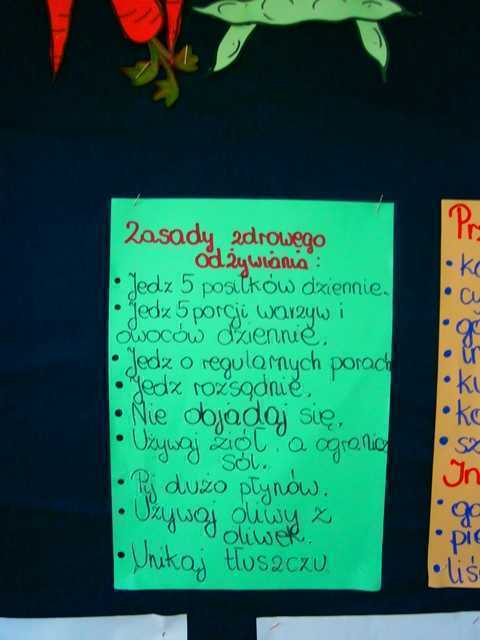 Zasady zdrowego
odżywiania:
• Jedz 5 posiłków dziennie.
• Jedz 5 porcji warzyw i
owoców dziennie.
• Jedz o regularnych porach
• Jedz rozsądnie.
• Nie objadaj się.
• Używaj ziół, a ogranicz
sól.
• Pij dużo płynów.
• Używaj oliwy z
oliwek.
• Unikaj tłuszczu